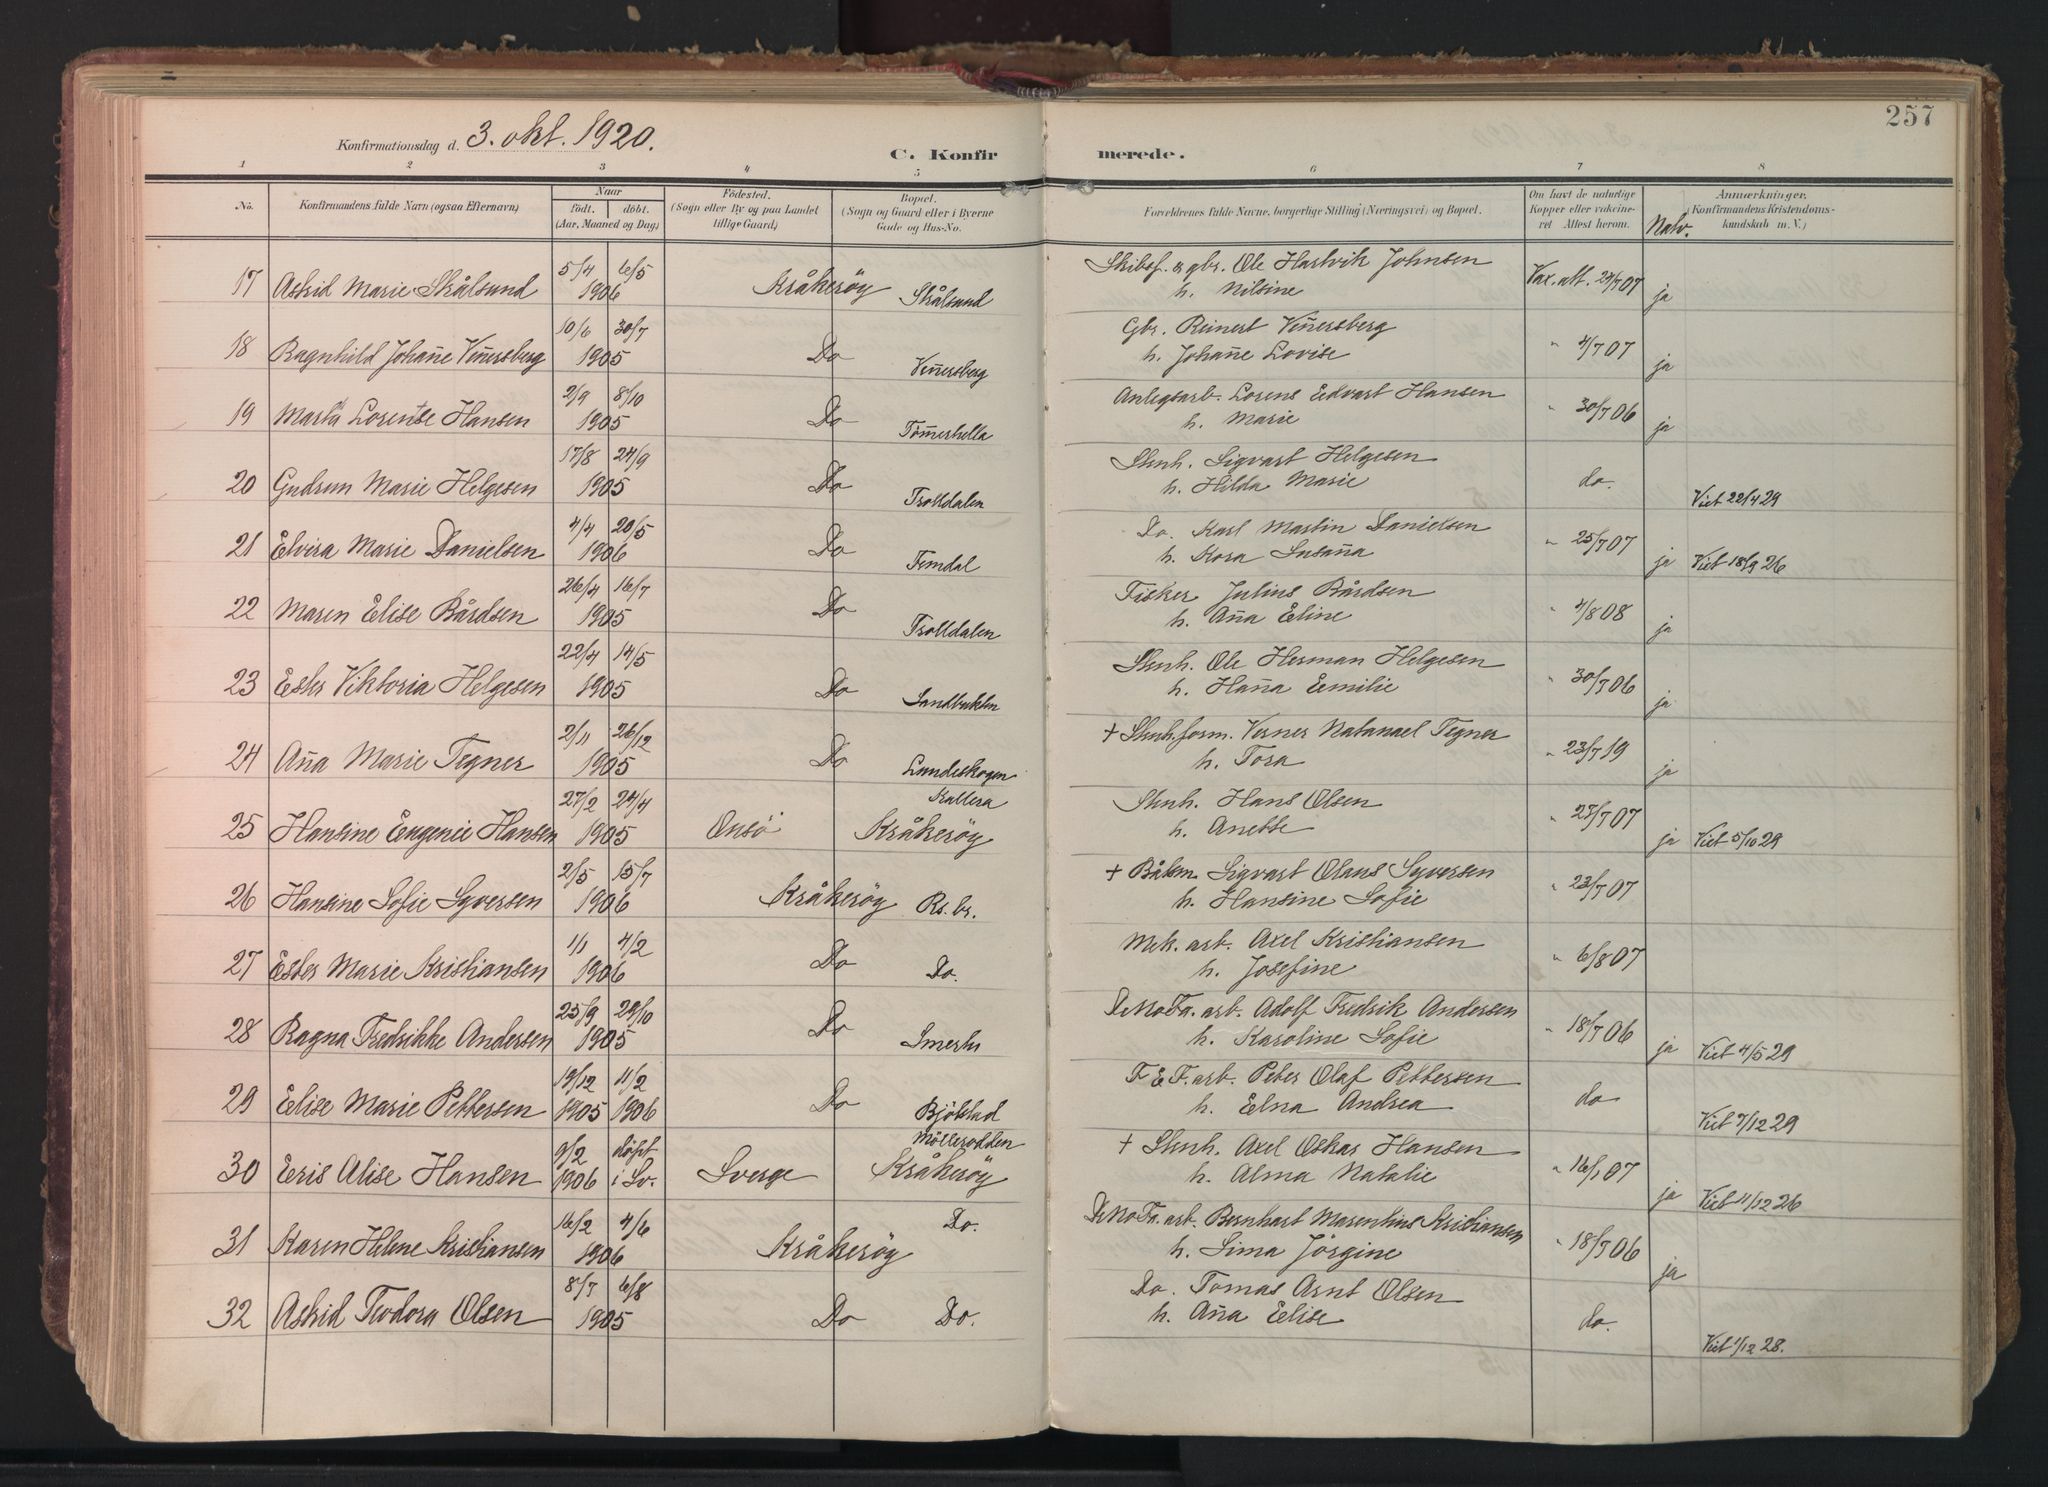 257
Konfirmationsdag d. 3. okt. 1920.
C. Konfir merede.
1 2 3 4 5 6 7 8
No. Konfirmandens fulde Navn (ogsaa Efternavn) Naar født. døbt. (Aar, Maaned og Dag) Fødested. (Sogn eller By og paa Landet tillige Gaard) Bopæl. (Sogn og Gaard eller i Byerne Gade og Hus-No. Forældrenes fulde Navne, borgerlige Stilling (Næringsvei) og Bopæl. Om havt de naturlige Kopper eller vakcineret Attest herom. Natv. Anmærkninger. (Konfirmandens Kristendomskundskab m. V.)
17 Astrid Marie Skålsund 5/4 6/5 1906 Kråkeröy Skålsund Skibsf. & gbr. Ole Hartvik Johnsen h. Nilsine Vax. att. 24/7 07 ja
18 Ragnhild Johan̄e Vin̄ersberg 10/6 30/7 1905 Do Vin̄ersberg Gbr. Reinert Vin̄ersberg h. Johan̄e Lovise " 4/7 07 ja
19 Marta Lorentse Hansen 2/9 8/10 1905 Do Töm̄erhella Anlegsarb. Lorens Edvart Hansen h. Marie " 30/7 06 ja
20 Gudrun Marie Helgesen 17/8 24/9 1905 Do Trolldalen Stenh. Sigvart Helgesen h. Hilda Marie do. Viet 22/4 29
21 Elvira Marie Danielsen 4/4 20/5 1906 Do Femdal Do. Karl Martin Danielsen h. Kora Susan̄a " 25/7 07 ja Viet 18/9 26
22 Maren Elise Bårdsen 26/4 16/7 1905 Do Trolldalen Fisker Julius Bårdsen h. An̄a Eline " 4/8 08 ja
23 Ester Viktoria Helgesen 22/4 14/5 1905 Do Sandbukten Stenh. Ole Herman Helgesen h. Han̄a Emilie " 30/7 06 ja
24 An̄a Marie Tegner 2/11 26/12 1905 Do Lundeskogen + Stenh.form. Verner Natanael Tegner h. Tora " 23/7 19 ja
25 Hansine Eugenie Hansen 27/2 24/4 1905 Onsö Kallera Kråkeröy Stenh. Hans Olsen h. Anette " 23/7 07 ja Viet 5/10 29
26 Hansine Sofie Syversen 2/5 15/7 1906 Kråkeröy Rs. br. + Båtm. Sigvart Olaus Syversen h. Hansine Sofie " 23/7 07
27 Ester Marie Kristiansen 1/1 4/2 1906 Do Do. Mek. arb. Axel Kristiansen h. Josefine " 6/8 07
28 Ragna Fredrikke Andersen 25/9 29/10 1905 Do Smerts DeNoFa. arb. Adolf Fredrik Andersen h. Karoline Sofie " 18/7 06 ja Viet 4/5 29
29 Elise Marie Pettersen 19/12 11/2 1905 1906 Do Bjölstad F & F. arb. Peter Olaf Pettersen h. Elna Andrea do Viet 7/12 29
30 Eris Alise Hansen 9/2 döpt 1906 i Sv. Sverge Möllerodden Kråkeröy + Stenh. Axel Oskar Hansen h. Alma Natalie " 16/1 07 ja Viet 11/12 26
31 Karen Helene Kristiansen 16/2 4/6 1906 Kråkeröy Do. DeNoFa. arb. Bernhart Marentius Kristiansen h. Lima Jörgine " 18/7 06 ja
32 Astrid Teodora Olsen 8/7 6/8 1905 Do Do. Do. Tomas Arnt Olsen h. An̄a Elise do. Viet 1/12 28.